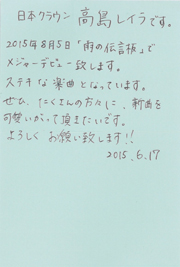 日本クラウン 高島レイラです。
2015年8月5日「雨の伝言板」で
メジャーデビュー致します。
ステキな楽曲となっています。
ぜひ、たくさんの方々に、新曲を
可愛いがって頂きたいです。
よろしくお願い致します!!
2015.6.17